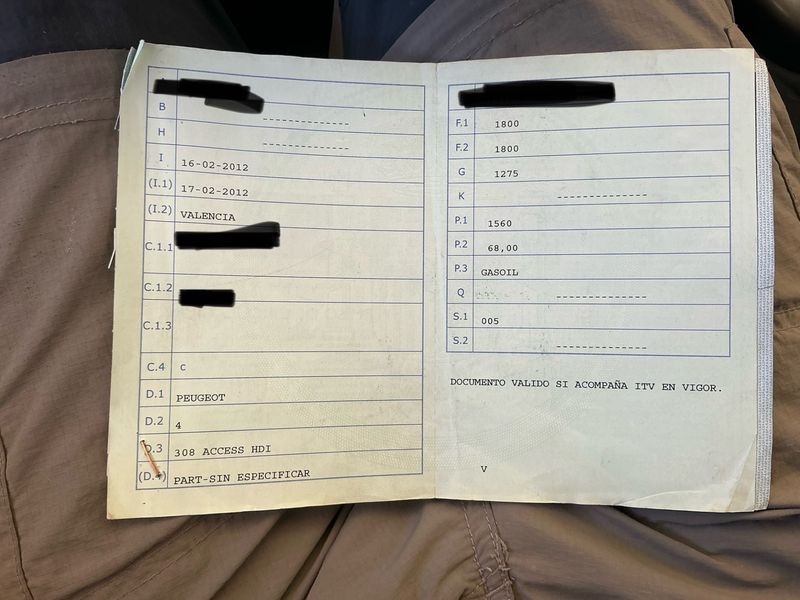 B
H
I 16-02-2012
(I.1) 17-02-2012
(I.2) VALENCIA
C.1.1
C.1.2
C.1.3
C.4 c
D.1 PEUGEOT
D.2 4
D.3 308 ACCESS HDI
PART-SIN ESPECIFICAR
F.1 1800
F.2 1800
G 1275
K
P.1 1560
P.2 68,00
P.3 GASOIL
Q
S.1 005
S.2
DOCUMENTO VALIDO SI ACOMPAÑA ITV EN VIGOR.
V